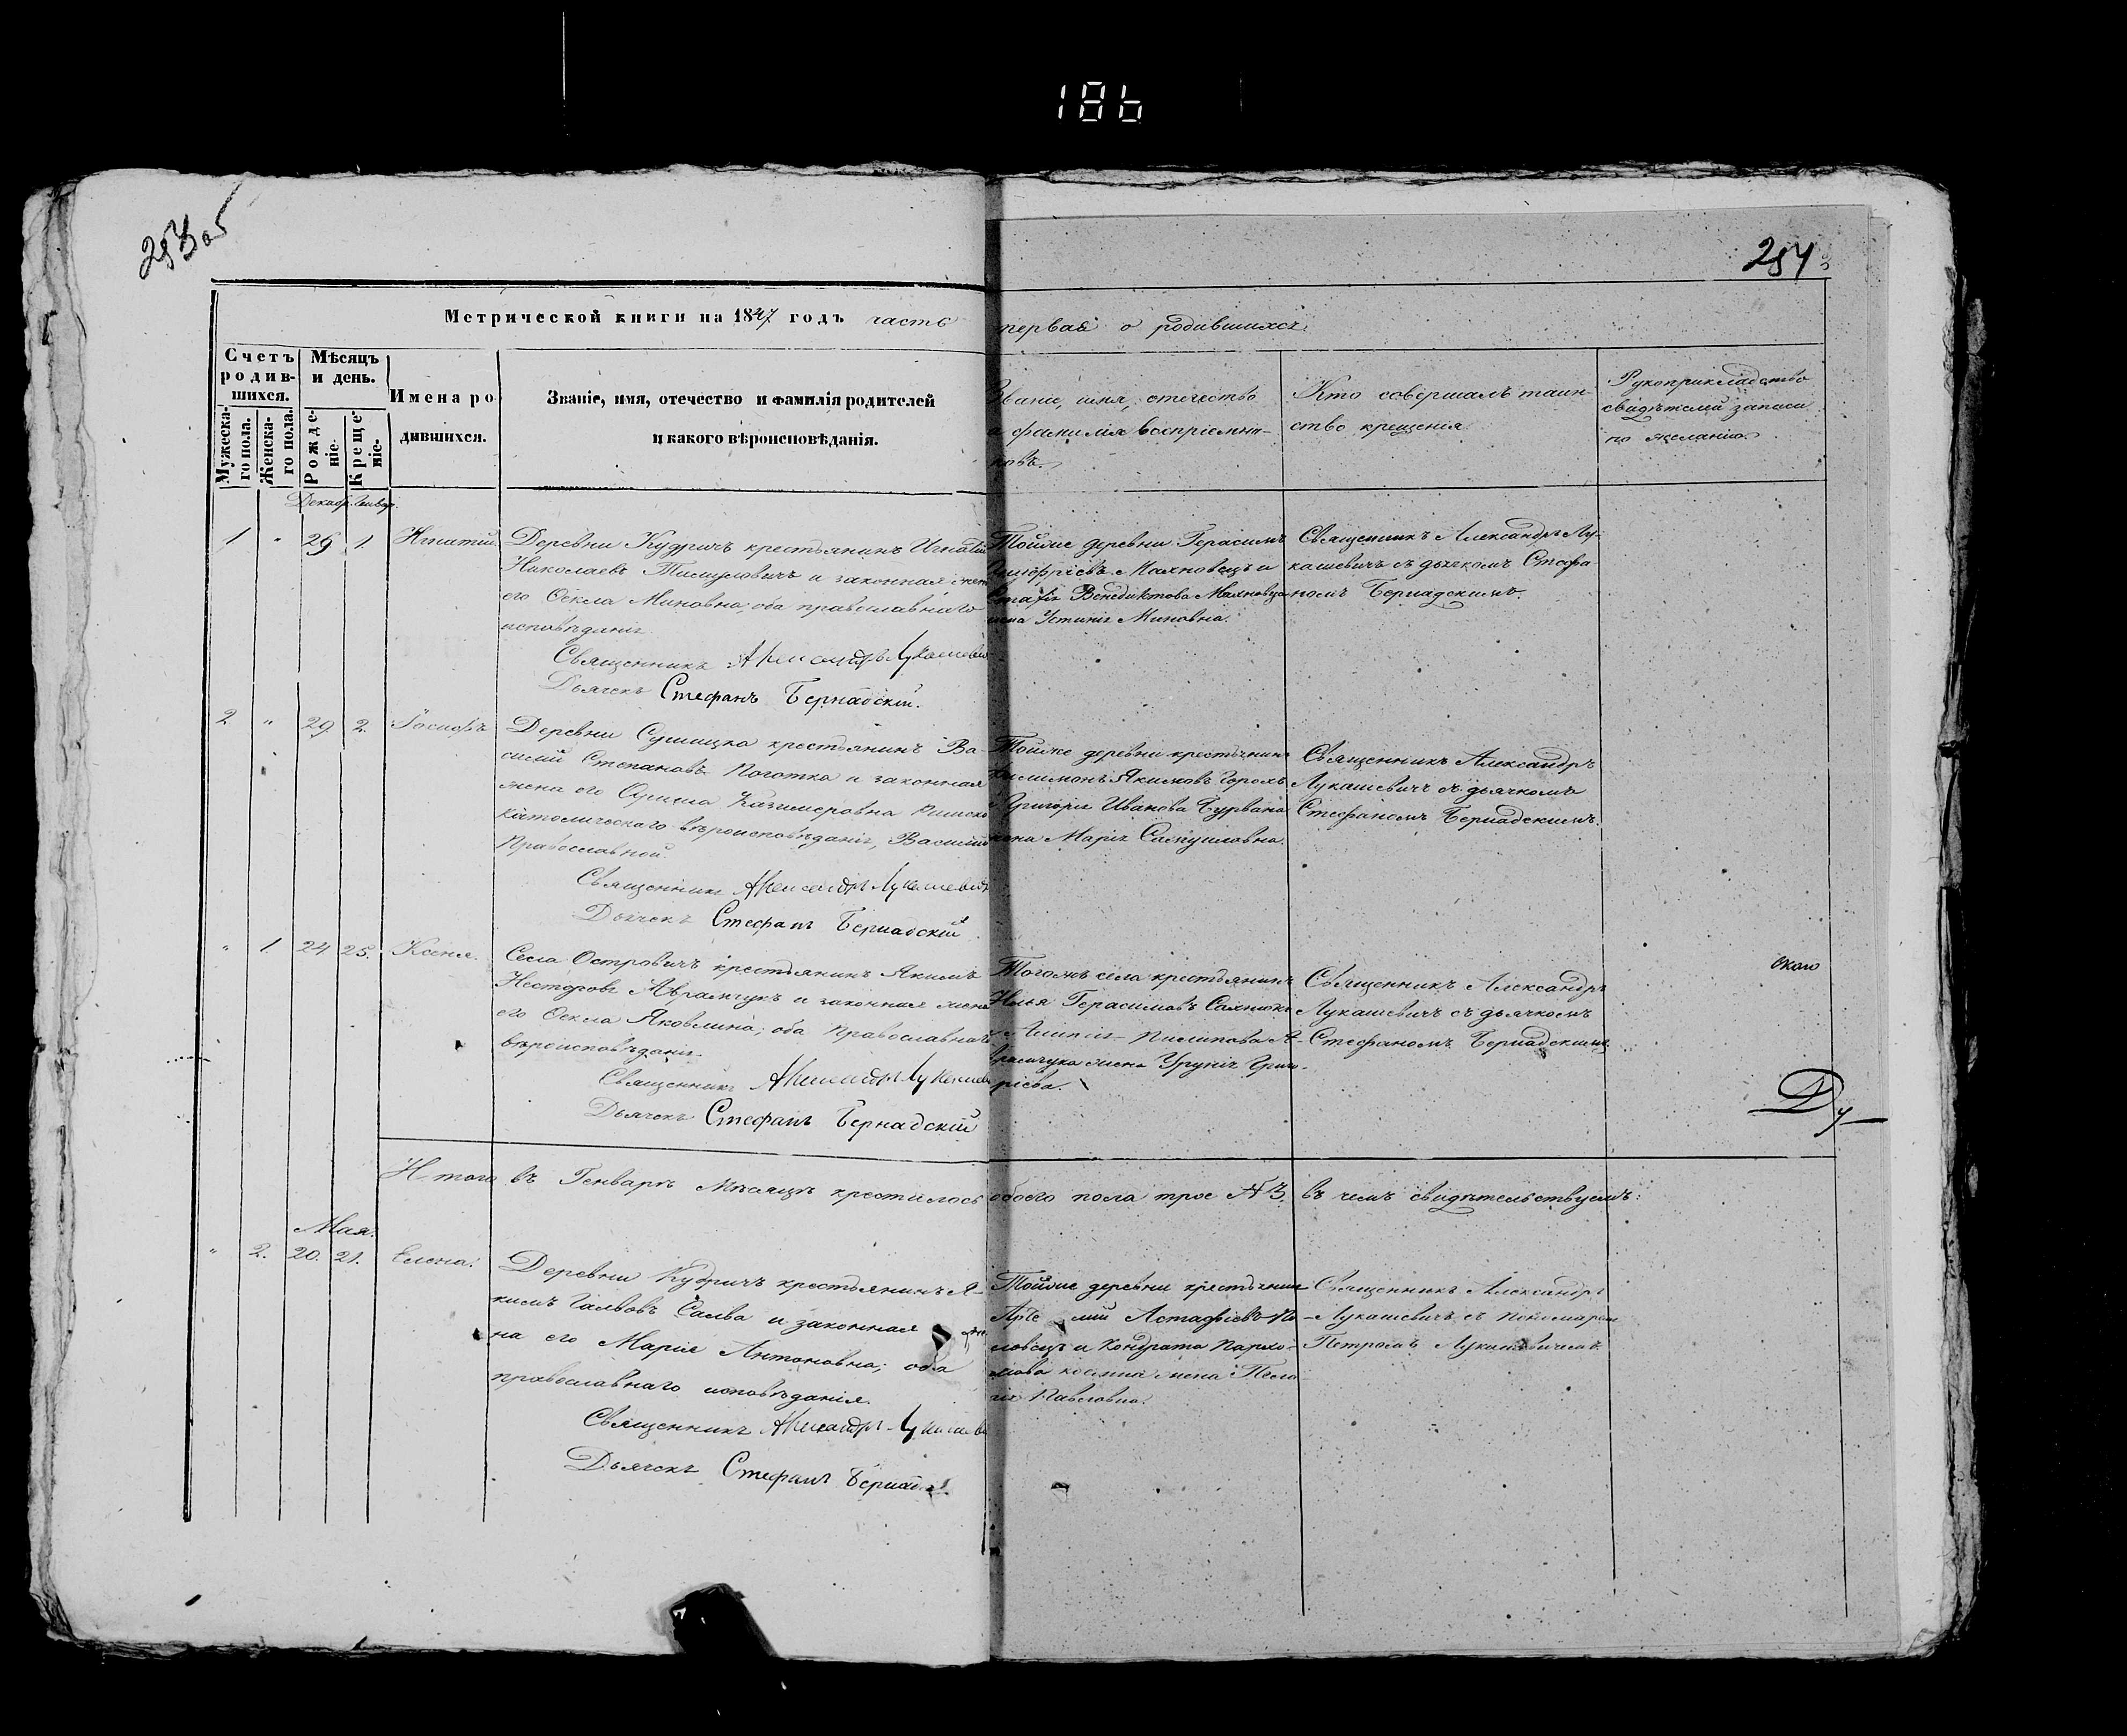 186
253 об
254
Метрической книги на 1847 годъ часть первая о родившихся
Счетъ родив-шихся.
Мужеска-го пола.
Женска-го пола.
Мѣсяцъ и день.
Рожде-ніе.
Креще-ніе.
Имена ро
дившихся.
Званіе, имя, отечество и фамилія родителей
и какого вѣроисповѣданія.
Званіе, имя, отечество
и фамилія воспріемни-
ковъ.
Кто совершалъ таин-
ство крещенія.
Рукоприкладство
свидѣтелей записи
по желанію.
Декабр. Генвар.
1 " 29 1. Игнатій.
Деревни Кудричъ крестьянинъ Игнатій
Николаевъ и законная жена
его Ѳекла Миновна; оба православнаго
исповѣданія.
Священникъ Александръ Лукашевичъ
Дьячекъ Стефанъ Бернадскій.
Тойже деревни Герасимъ
Махновецъ и
Венедиктова Махновца
жена Устинія Миновна.
Священникъ Александръ Лу-
кашевичъ съ дьячкомъ Стефа-
номъ Бернадскимъ.
2 " 29 2. Іосифъ
Деревни Сушицка крестьянинъ Ва-
силій Степановъ Коготка и законная
жена его Казимеровна Римско
католическаго вѣроисповѣданія, Василій
Православной.
Священникъ Александръ Лукашевичъ
Дьячекъ Стефанъ Бернадскій
Тойже деревни крестьянинъ
Филимонъ Якимовъ
и Григорія Иванова
жена Марія Самуиловна.
Священникъ Александръ
Лукашевичъ съ дьячкомъ
Стефаномъ Бернадскимъ.
" 1. 24 25. Ксенія.
Села Островичъ крестьянинъ Якимъ
Несторовъ Аврамчукъ и законная жена
его Ѳекла Яковлина; оба православнаго
вѣроисповѣданія.
Священникъ Александръ Лукашевичъ
Дьячекъ Стефанъ Бернадскій
Тогожъ села крестьянинъ
Илья Герасимовъ
Пилипова А-
врамчука жена Григо-
рієва.
Священникъ Александръ
Лукашевичъ съ дьячкомъ
Стефаномъ Бернадскимъ
Итого въ Генварѣ Мѣсяцѣ крестилось обоего пола трое № 3. въ чемъ свидѣтельствуемъ:
Мая.
" 2. 20. 21. Елена.
Деревни Кудричъ крестьянинъ Я-
кимъ и законная же-
на его Марія Антоновна; оба
православнаго исповѣданія.
Священникъ Александръ Лукашевичъ
Дьячекъ Стефанъ Бернад
Тойже деревни крестьянинъ
Астафіевъ По-
ловецъ и Кондрата Пархо-
мова жена Пела-
гія Павловна.
Священникъ Александръ
Лукашевичъ съ пономаремъ
Петромъ Лукашевичемъ.